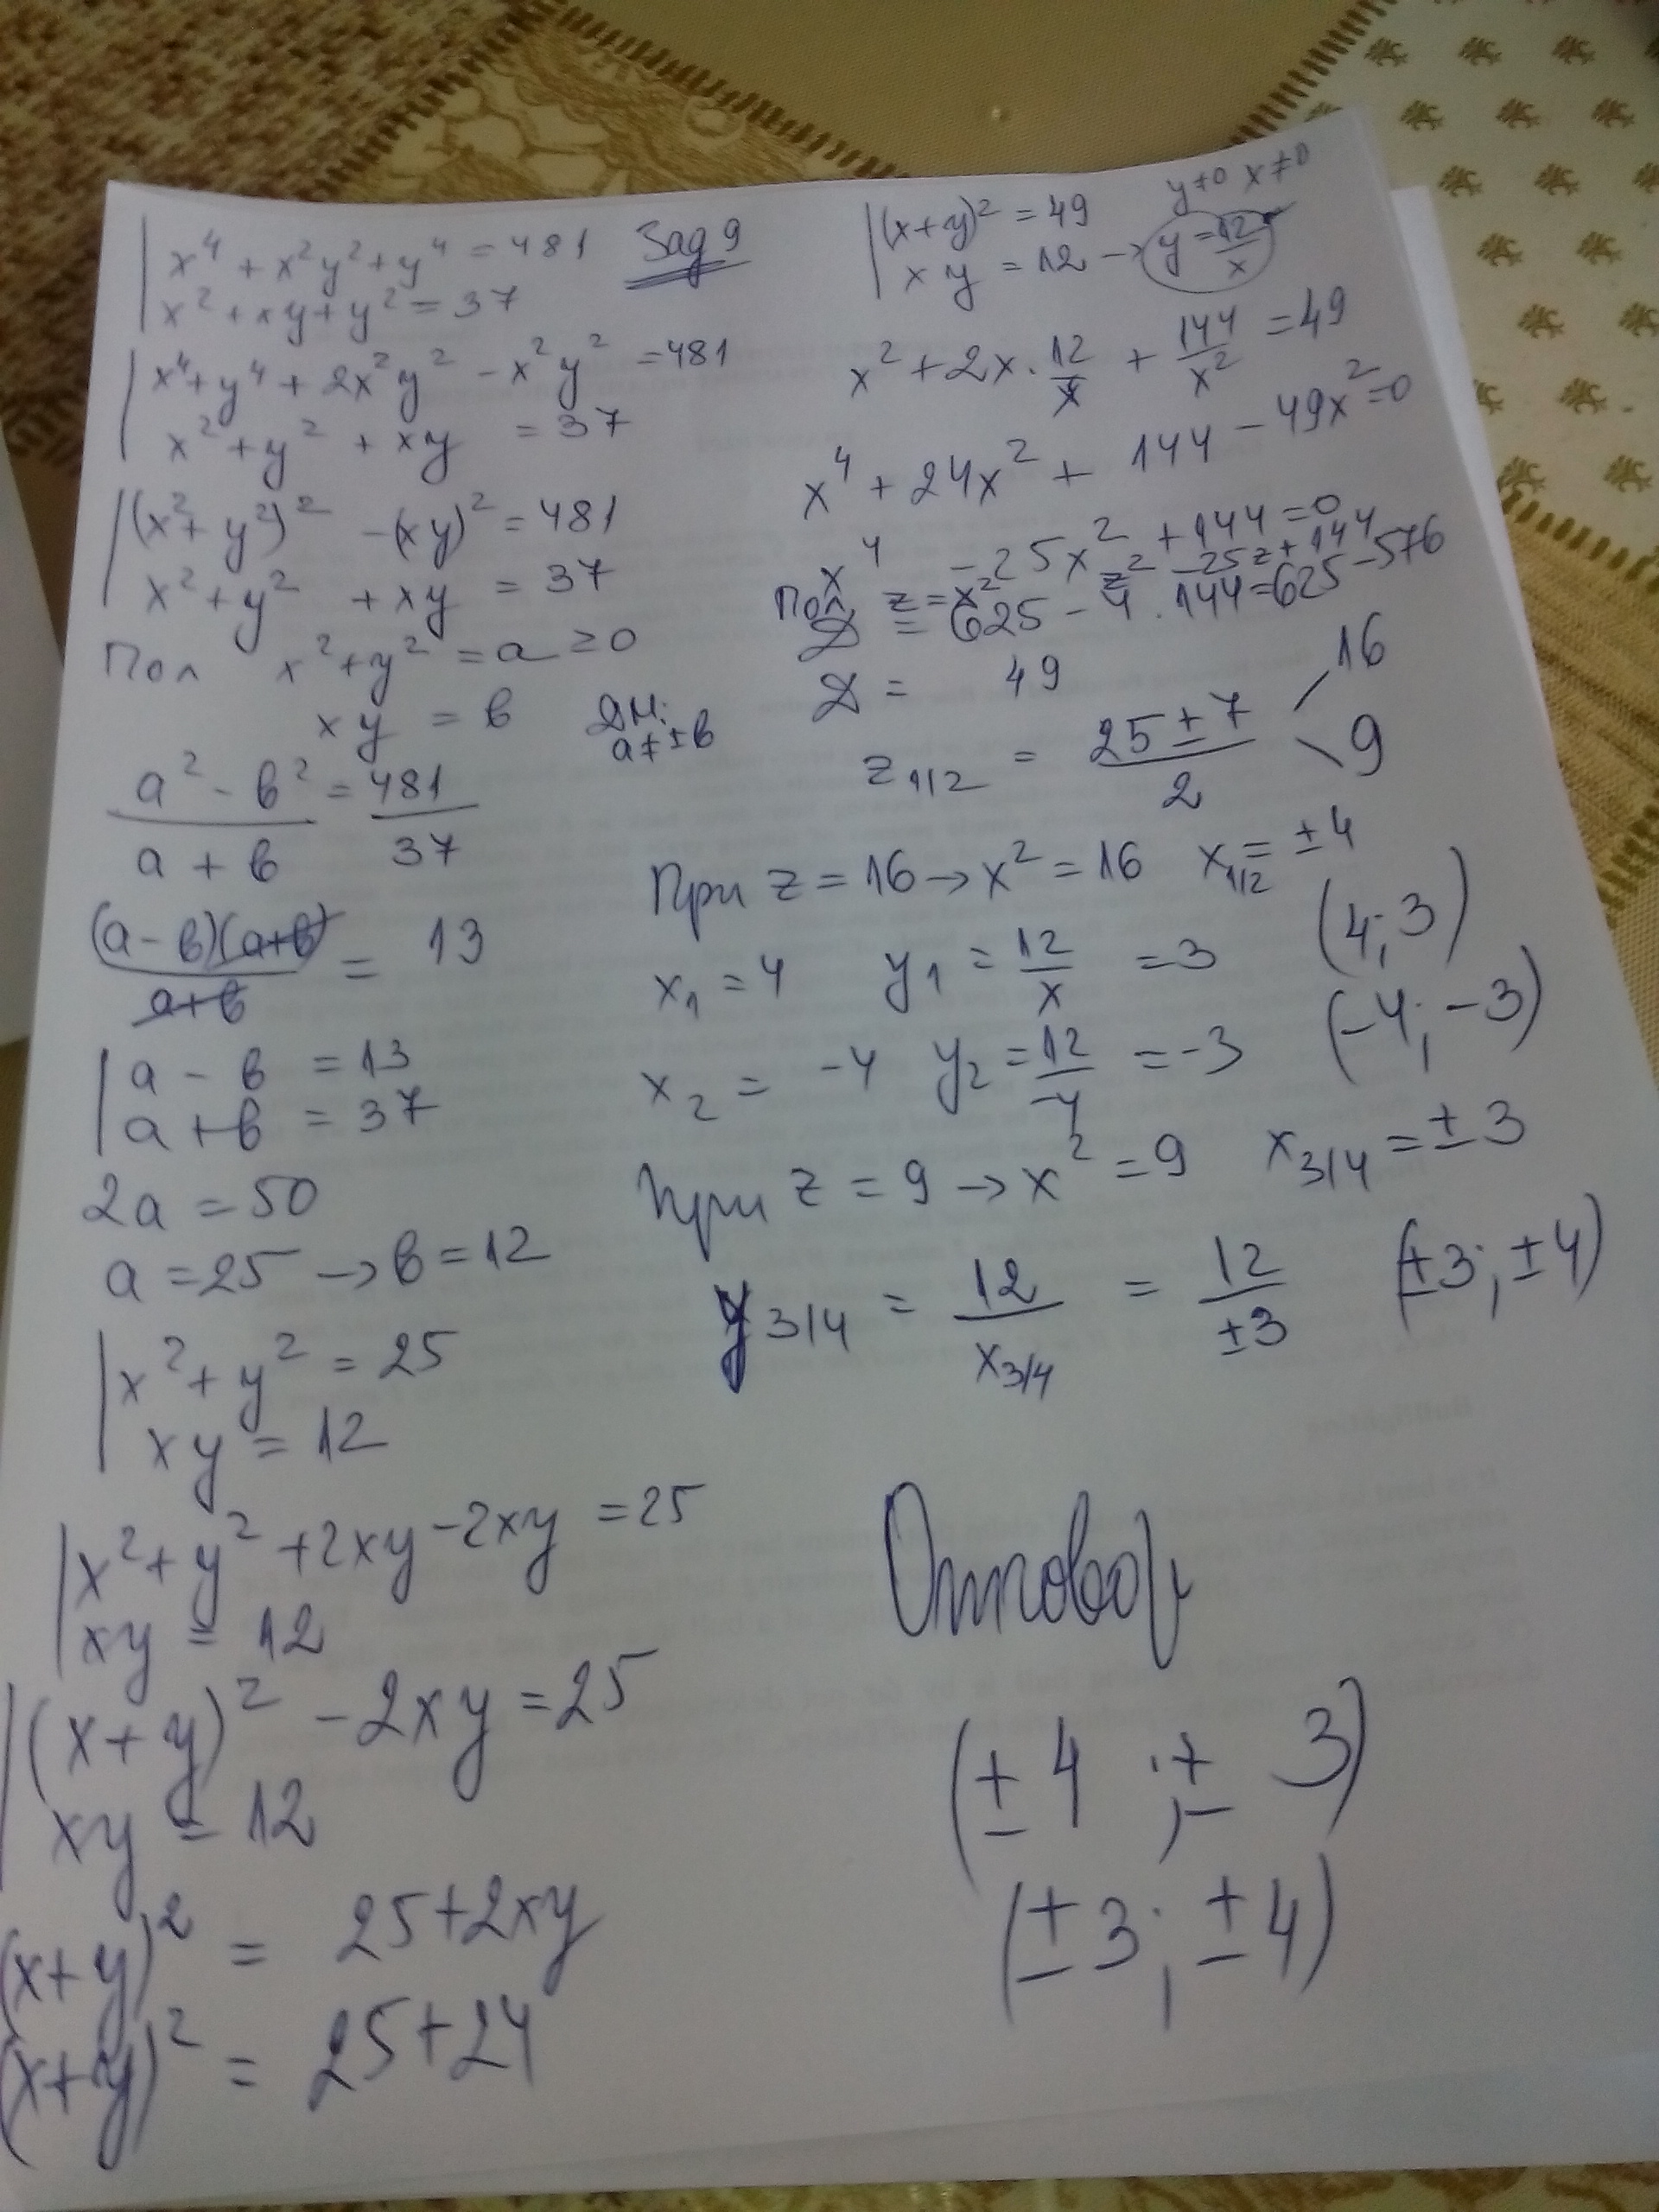 x⁴ + x²y² + y⁴ = 481 Зад 9
x² + xy + y² = 37
x⁴ + y⁴ + 2x²y² - x²y² = 481
x² + y² + xy = 37
(x² + y²)² - (xy)² = 481
x² + y² + xy = 37
Пол x² + y² = a ≥ 0
xy = b ДМ:
a ≠ ±b
a² - b² / a + b = 481 / 37
(a - b)(a+b) / a+b = 13
a - b = 13
a + b = 37
2a = 50
a = 25 → b = 12
x² + y² = 25
xy = 12
x² + y² + 2xy - 2xy = 25
xy = 12
(x + y)² - 2xy = 25
xy = 12
(x+y)² = 25 + 2xy
(x+y)² = 25 + 24
y≠0 x≠0
(x+y)² = 49
xy = 12 → y = 12/x
x² + 2x · 12/x + 144/x² = 49
x⁴ + 24x² + 144 - 49x² = 0
x⁴ - 25x² + 144 = 0
Пол z = x² z² - 25z + 144
D = 625 - 4 · 144 = 625 - 576
D = 49
z1/2 = 25 ± 7 / 2 16 9
При z = 16 → x² = 16 x1/2 = ±4
x₁ = 4 y₁ = 12/x = 3 (4; 3)
x₂ = -4 y₂ = 12/-4 = -3 (-4; -3)
При z = 9 → x² = 9 x3/4 = ±3
y3/4 = 12/x3/4 = 12/±3 (±3; ±4)
Отговор
(±4; ±3)
(±3; ±4)